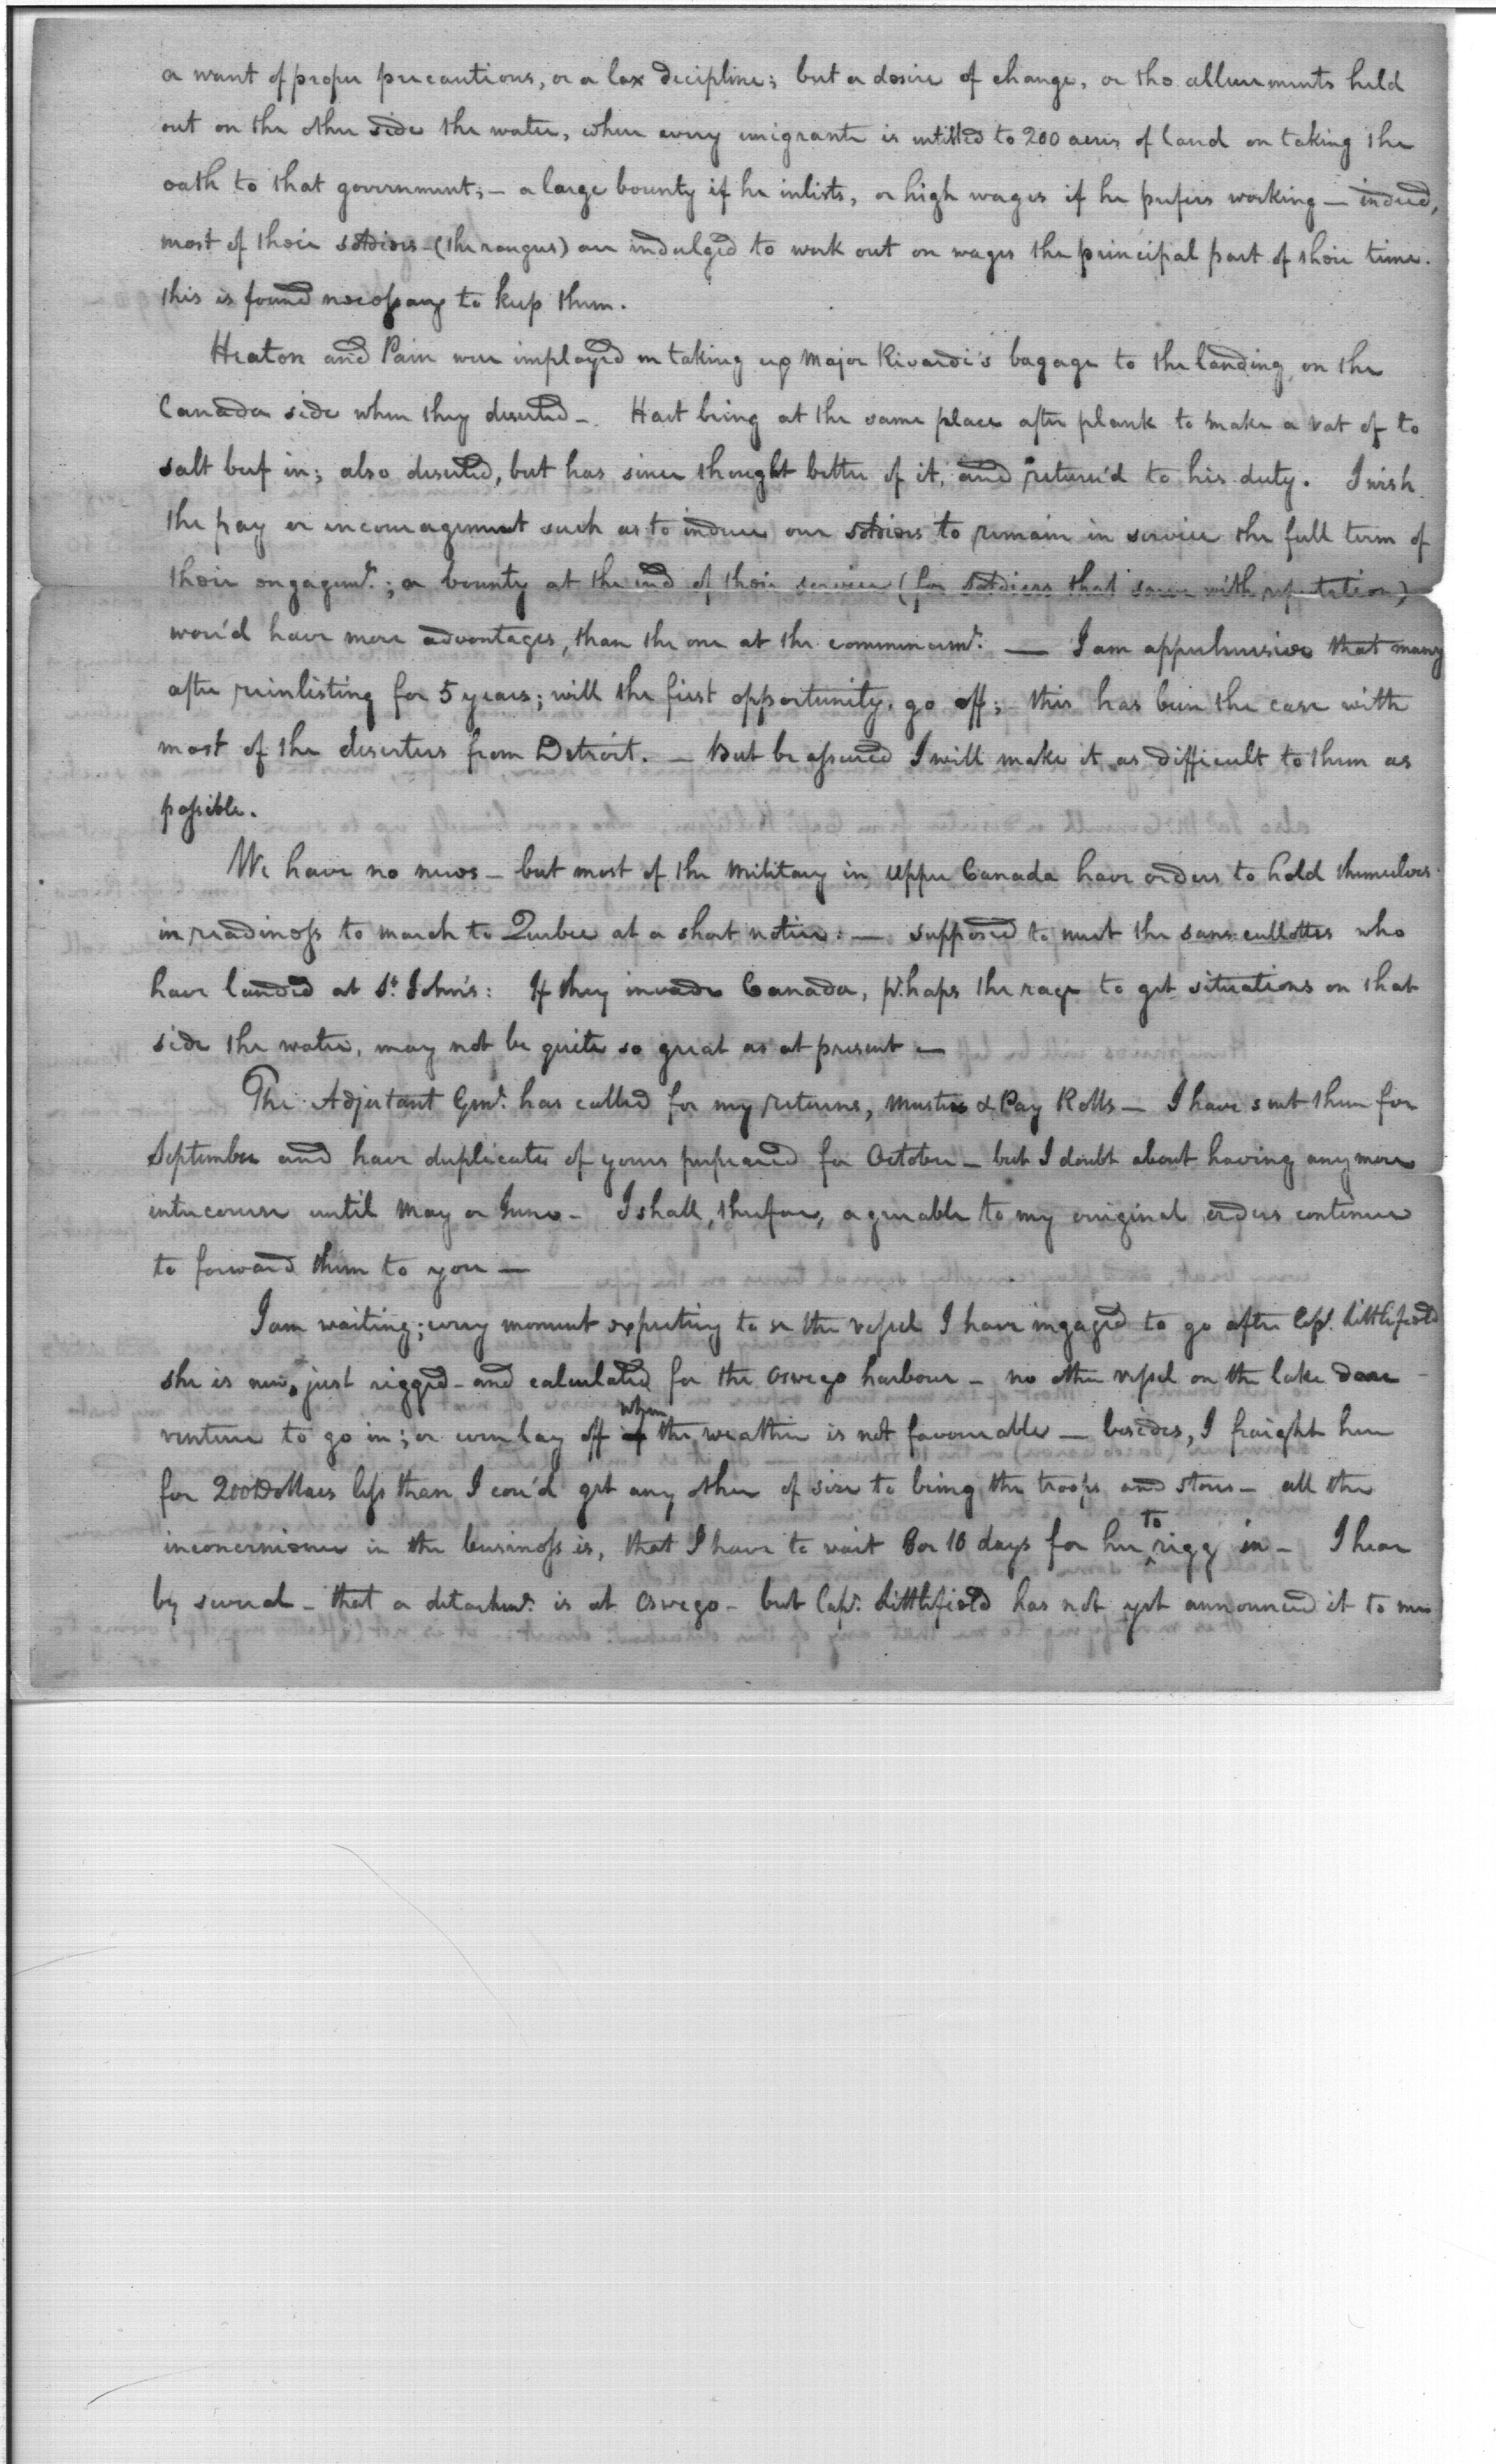 a want of proper precautions, or a lax decipline; but a desire of change, or the allurements held
out on the other side the water, where every emigrante is entitled to 200 acres of land on taking the
oath to that government; – a large bounty if he inlists, or high wages if he prefers working – indeed,
most of their soldiers – (the rangers) are indulged to work out on wages the principal part of their time.
this is found necessary to keep them.
Heaton and Pain were imployed in taking up Major Rivardi's bagage to the landing, on the
Canada side when they deserted – Hart being at the same place after plank to make a vat of to
salt beef in; also deserted, but has since thought better of it, and return'd to his duty. I wish
the pay or encouragement such as to induce our soldiers to remain in service the full term of
their engagemt.; a bounty at the end of their service (for soldiers that serve with reputation)
wou'd have more advantages, than the one at the commencemt. — I am apprehensive that many
after reinlisting for 5 years; will the first opportunity, go off; this has been the case with
most of the deserters from Detroit. – But be assured I will make it as difficult to them as
possible.
We have no news – but most of the Military in Upper Canada have orders to hold themselves
in readiness to march to Quebec at a short notice: — supposed to meet the sans-cullottes who
have landed at St. John's: If they invade Canada, p'rhaps the rage to get situations on that
side the water, may not be quite so great as at present —
The Adjutant Genl. has called for my returns, Muster & Pay Rolls – I have sent them for
September and have duplicates of yours prepared for October – but I doubt about having any more
intercourse until May or June – I shall, therefore, agreable to my original orders continue
to forward them to you —
I am waiting; every moment expecting to se the vessel I have ingaged to go after Capt. Littlefield
she is new, just rigged – and calculated for the Oswego harbour – no other vessel on the lake dare
venture to go in; or even lay off when the weather is not favourable — besides, I fraight her
for 200 Dollars less than I cou'd get any other of size to bring the troops and stores – all the
inconvenience in the business is, that I have to wait 8 or 10 days for her to rigg in – I hear
by several – that a detachmt. is at Oswego – but Capt. Littlefield has not yet announced it to me